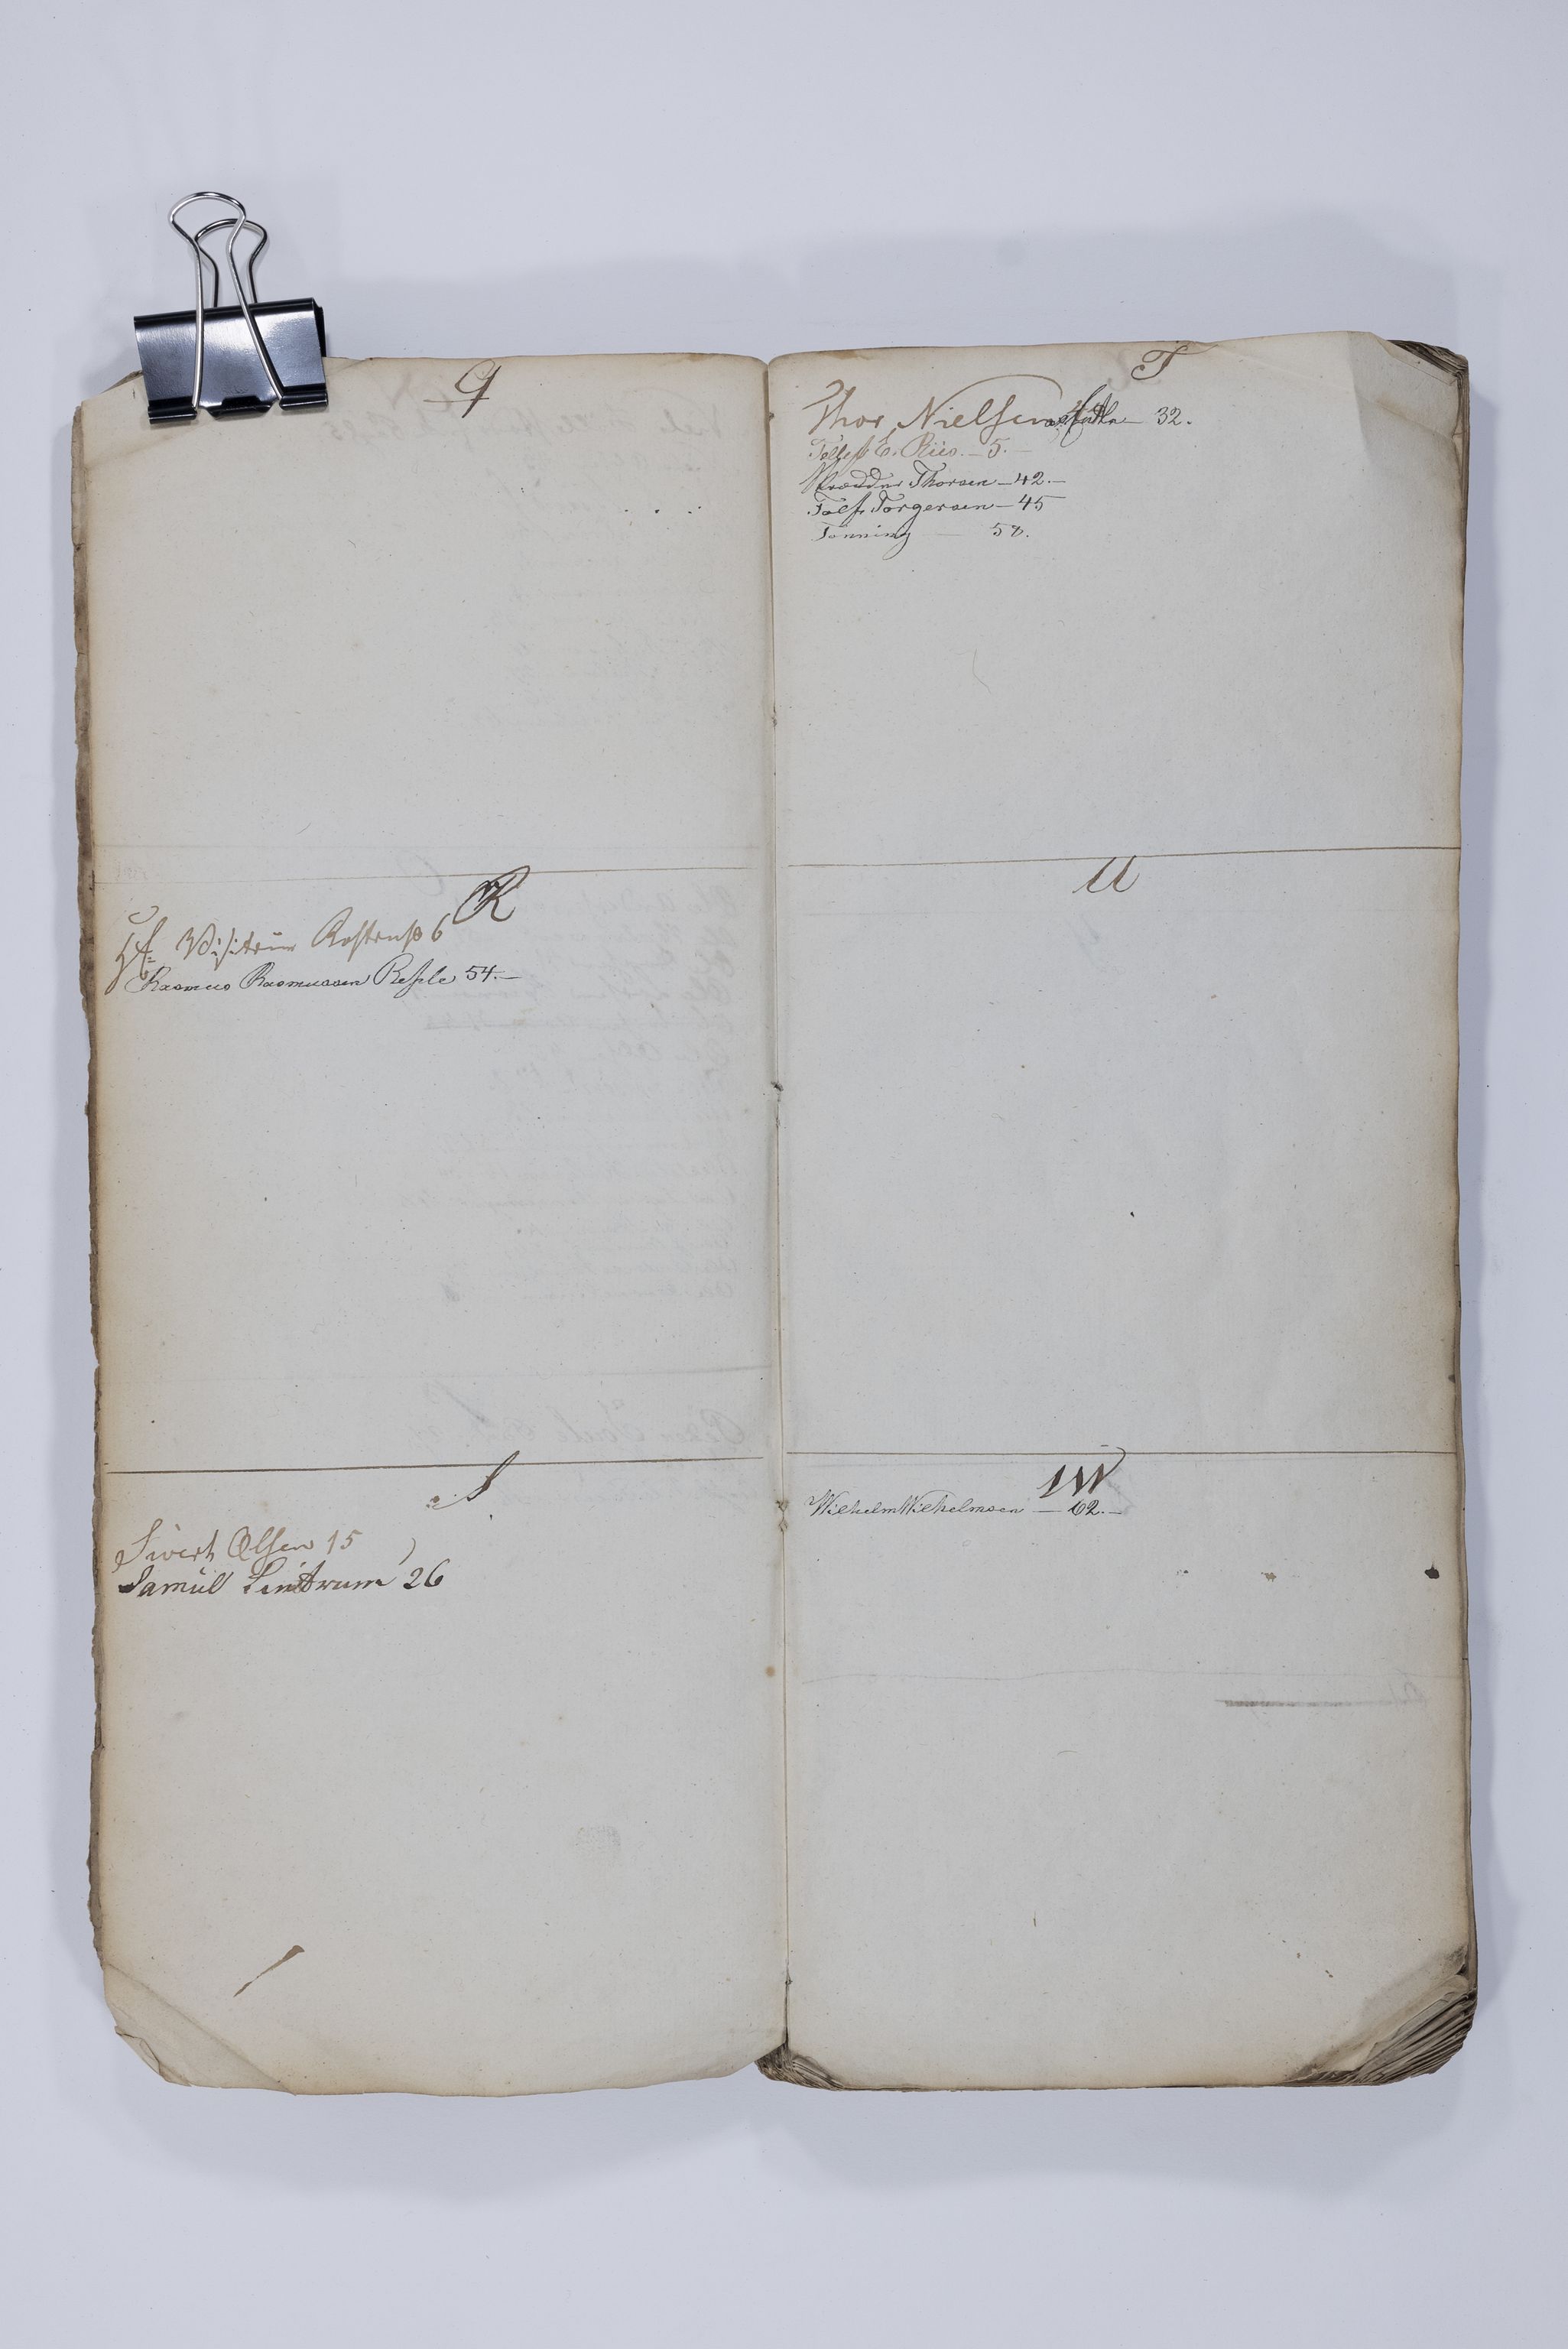 Q
R
Hr: Visiteur 6
Rasmus Rasmussen Refsle 54.—
S
Sivert Olsen 15
Samül Lintrum 26
T
Thor Nielsen 32.
Tollef E. Riis. — 5. —
Thorsen — 42. —
Tolf Torgersen — 45
Tønning — 58.
U
W
Wilhelm Wilhelmsen — 62. —